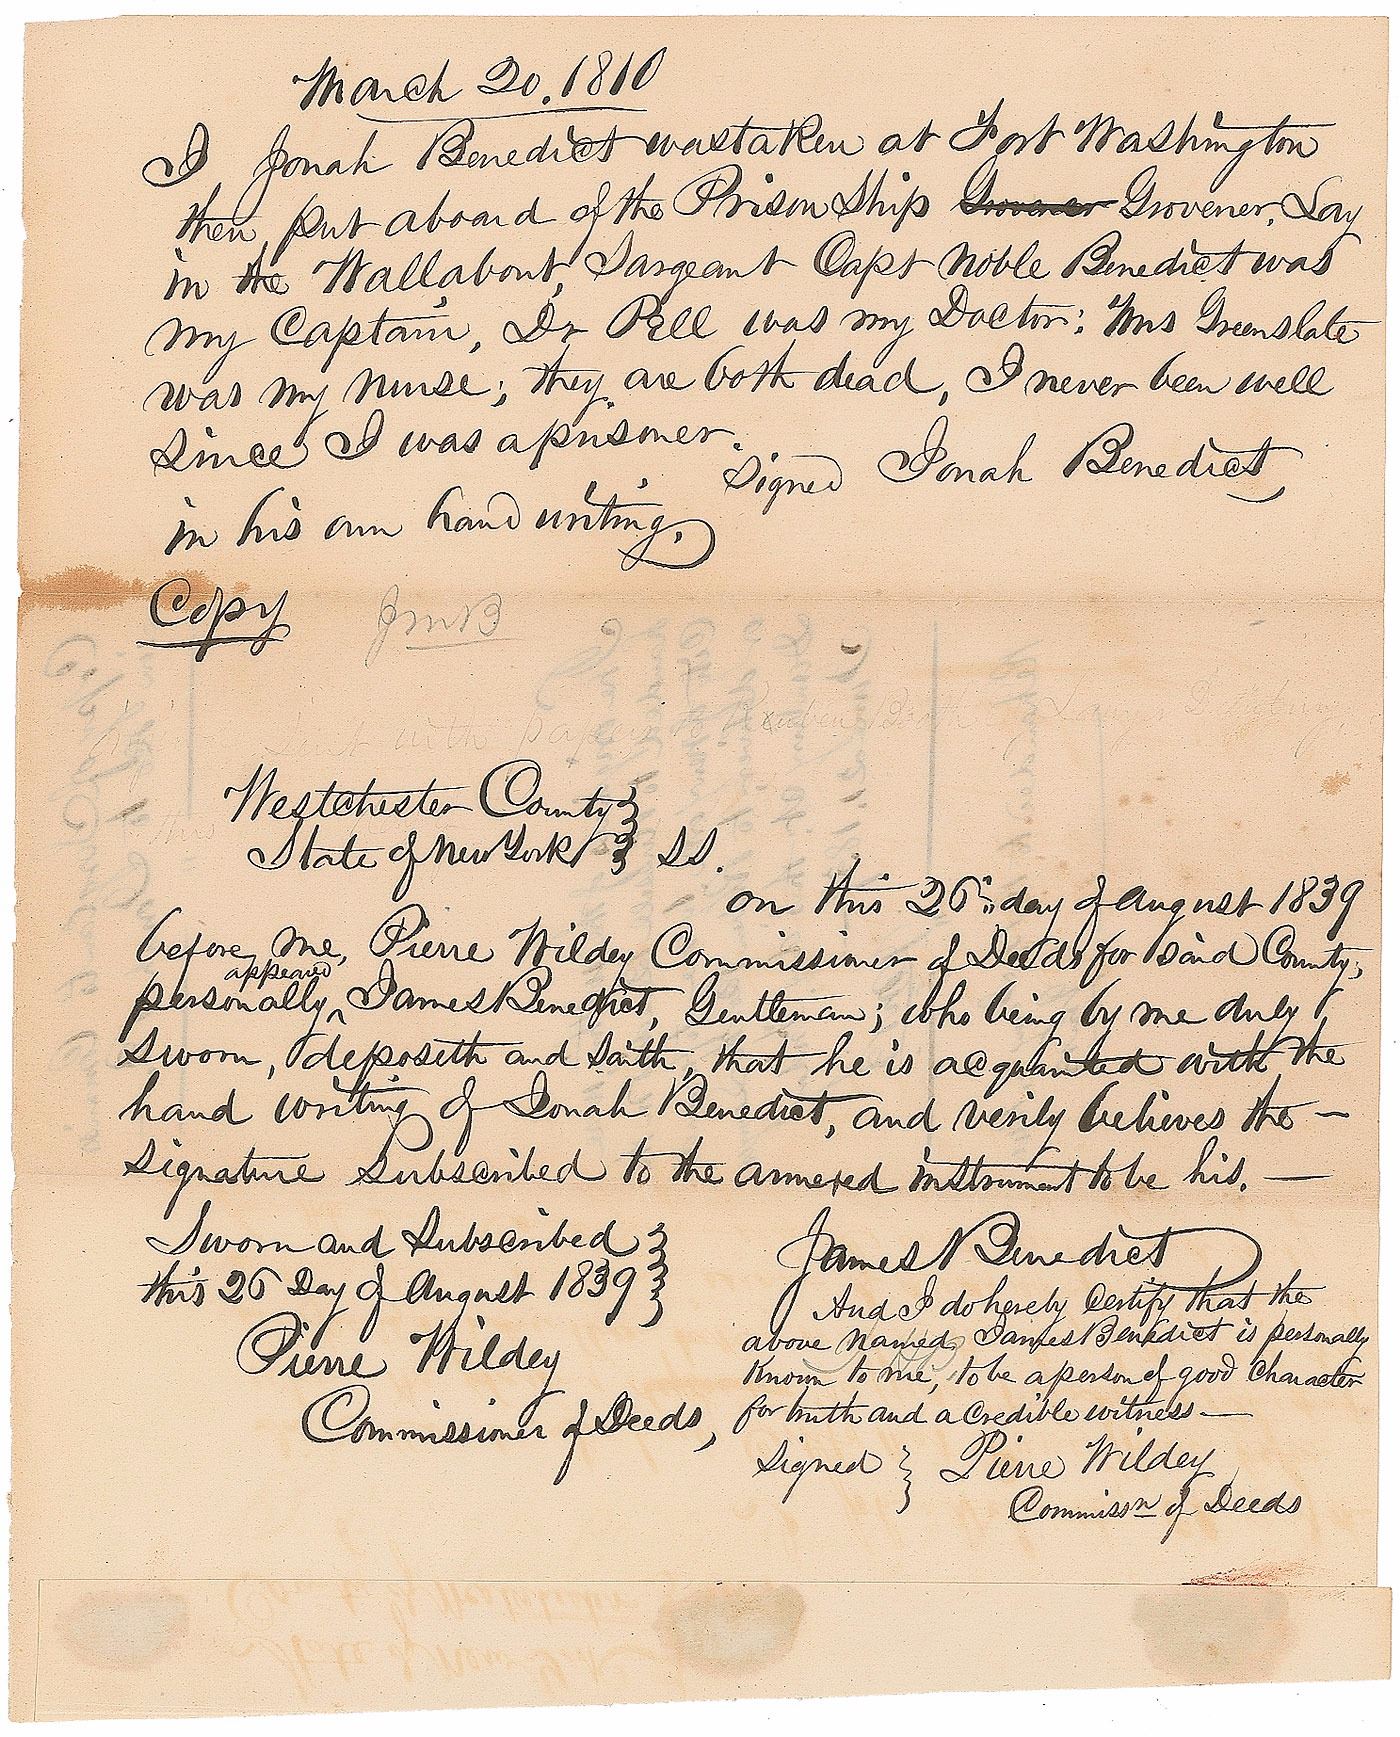 March 20. 1810
I Jonah Benedict was taken at Fort Washington
then put aboard of the Prison Ship Grovener Grovener, Lay
in the Wallabout, Sargeant Capt Noble Benedict was
my Captain, Dr Pell was my Doctor; Mrs Greenslate
was my nurse; they are both dead, I never been well
since I was a prisoner.
Signed Jonah Benedict,
in his own hand writing.
Copy JmB
sent with papers to Reuben Booth Danbury
Westchester County }
State of New York } SS.
on this 26th day of August 1839
before me, Pierre Wildey Commissioner of Deeds for said County,
appeared
personally ‸ James Benedict, Gentleman; who being by me duly
sworn, deposeth and saith, that he is acquainted with the
hand writing of Jonah Benedict, and verily believes the —
signature subscribed to the annexed instrument to be his. —
Sworn and Subscribed }
this 26 Day of August 1839 }
Pierre Wildey
Commissioner of Deeds,
James Benedict
And I do hereby certify that the
above named James Benedict is personally
known to me, to be a person of good character
for truth and a credible witness —
Signed } Pierre Wildey
Commissn of Deeds